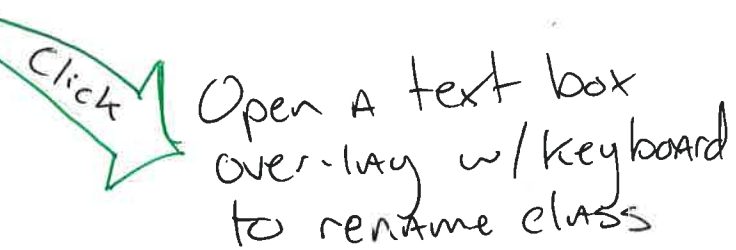 Click
Open A text box
over-lay w/ keyboard
to rename class